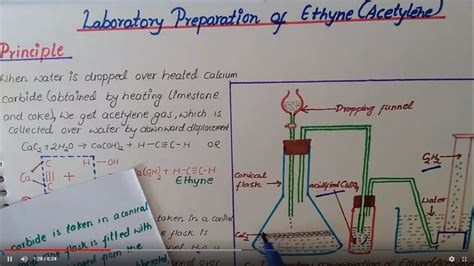 Laboratory Preparation of Ethyne (Acetylene)
Principle
When water is dropped over heated calcium
carbide (obtained by heating limestone
and coke), We get acetylene gas, which is
collected over water by downward displacement
CaC₂+2H₂O → Ca(OH)₂ + H-C≡C-H OR
C H-OH
Ca ||| +
C
Ca(OH)₂ + H-C≡C-H
Ethyne
carbide is taken in a conical
flask is filled with
from the
liberated
Dropping funnel
Conical
flask
acidified CuSO₄
C₂H₂
Water
CaC₂
preparation of
1:28 / 6:24